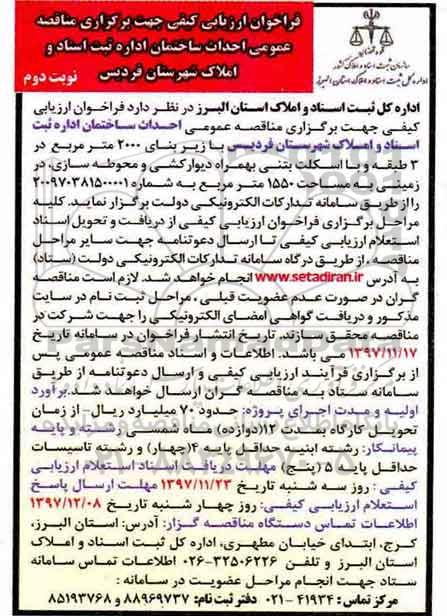 فراخوان ارزیابی کیفی جهت برگزاری مناقصه
عمومی احداث ساختمان اداره ثبت اسناد و
املاک شهرستان فردیس
نوبت دوم
قوه قضائیه
سازمان ثبت اسناد و املاک کشور
اداره کل ثبت اسناد و املاک استان البرز
اداره کل ثبت اسناد و املاک استان البرز در نظر دارد فراخوان ارزیابی
کیفی جهت برگزاری مناقصه عمومی احداث ساختمان اداره ثبت
اسناد و املاک شهرستان فردیس با زیر بنای ۲۰۰۰ متر مربع در
۳ طبقه و با اسکلت بتنی بهمراه دیوارکشی و محوطه سازی، در
زمینی به مساحت ۱۵۵۰ متر مربع به شماره ۲۰۰۹۷۰۳۸۱۵۰۰۰۰۱
را از طریق سامانه تدارکات الکترونیکی دولت برگزار نماید. کلیه
مراحل برگزاری فراخوان ارزیابی کیفی از دریافت و تحویل اسناد
استعلام ارزیابی کیفی تا ارسال دعوتنامه جهت سایر مراحل
مناقصه، از طریق درگاه سامانه تدارکات الکترونیکی دولت (ستاد)
به آدرس www.setadiran.ir انجام خواهد شد. لازم است مناقصه
گران در صورت عدم عضویت قبلی، مراحل ثبت نام در سایت
مذکور و دریافت گواهی امضای الکترونیکی را جهت شرکت در
مناقصه محقق سازند. تاریخ انتشار فراخوان در سامانه تاریخ
۱۳۹۷/۱۱/۱۷ می باشد. اطلاعات و اسناد مناقصه عمومی پس
از برگزاری فرآیند ارزیابی کیفی و ارسال دعوتنامه از طریق
سامانه ستاد به مناقصه گران ارسال خواهد شد. برآورد
اولیه و مدت اجرای پروژه: حدود ۷۰ میلیارد ریال - از زمان
تحویل کارگاه بمدت ۱۲ (دوازده) ماه شمسی رشته و پایه
پیمانکار: رشته ابنیه حداقل پایه ۴ (چهار) و رشته تاسیسات
حداقل پایه ۵ (پنج) مهلت دریافت اسناد استعلام ارزیابی
کیفی: روز سه شنبه تاریخ ۱۳۹۷/۱۱/۲۳ مهلت ارسال پاسخ
استعلام ارزیابی کیفی: روز چهار شنبه تاریخ ۱۳۹۷/۱۲/۰۸
اطلاعات تماس دستگاه مناقصه گزار: آدرس: استان البرز،
کرج، ابتدای خیابان مطهری، اداره کل ثبت اسناد و املاک
استان البرز و تلفن ۳۲۵۰۶۲۲۶-۰۲۶ اطلاعات تماس سامانه
ستاد جهت انجام مراحل عضویت در سامانه:
مرکز تماس: ۴۱۹۳۴-۰۲۱ دفتر ثبت نام: ۸۸۹۶۹۷۳۷ و ۸۵۱۹۳۷۶۸